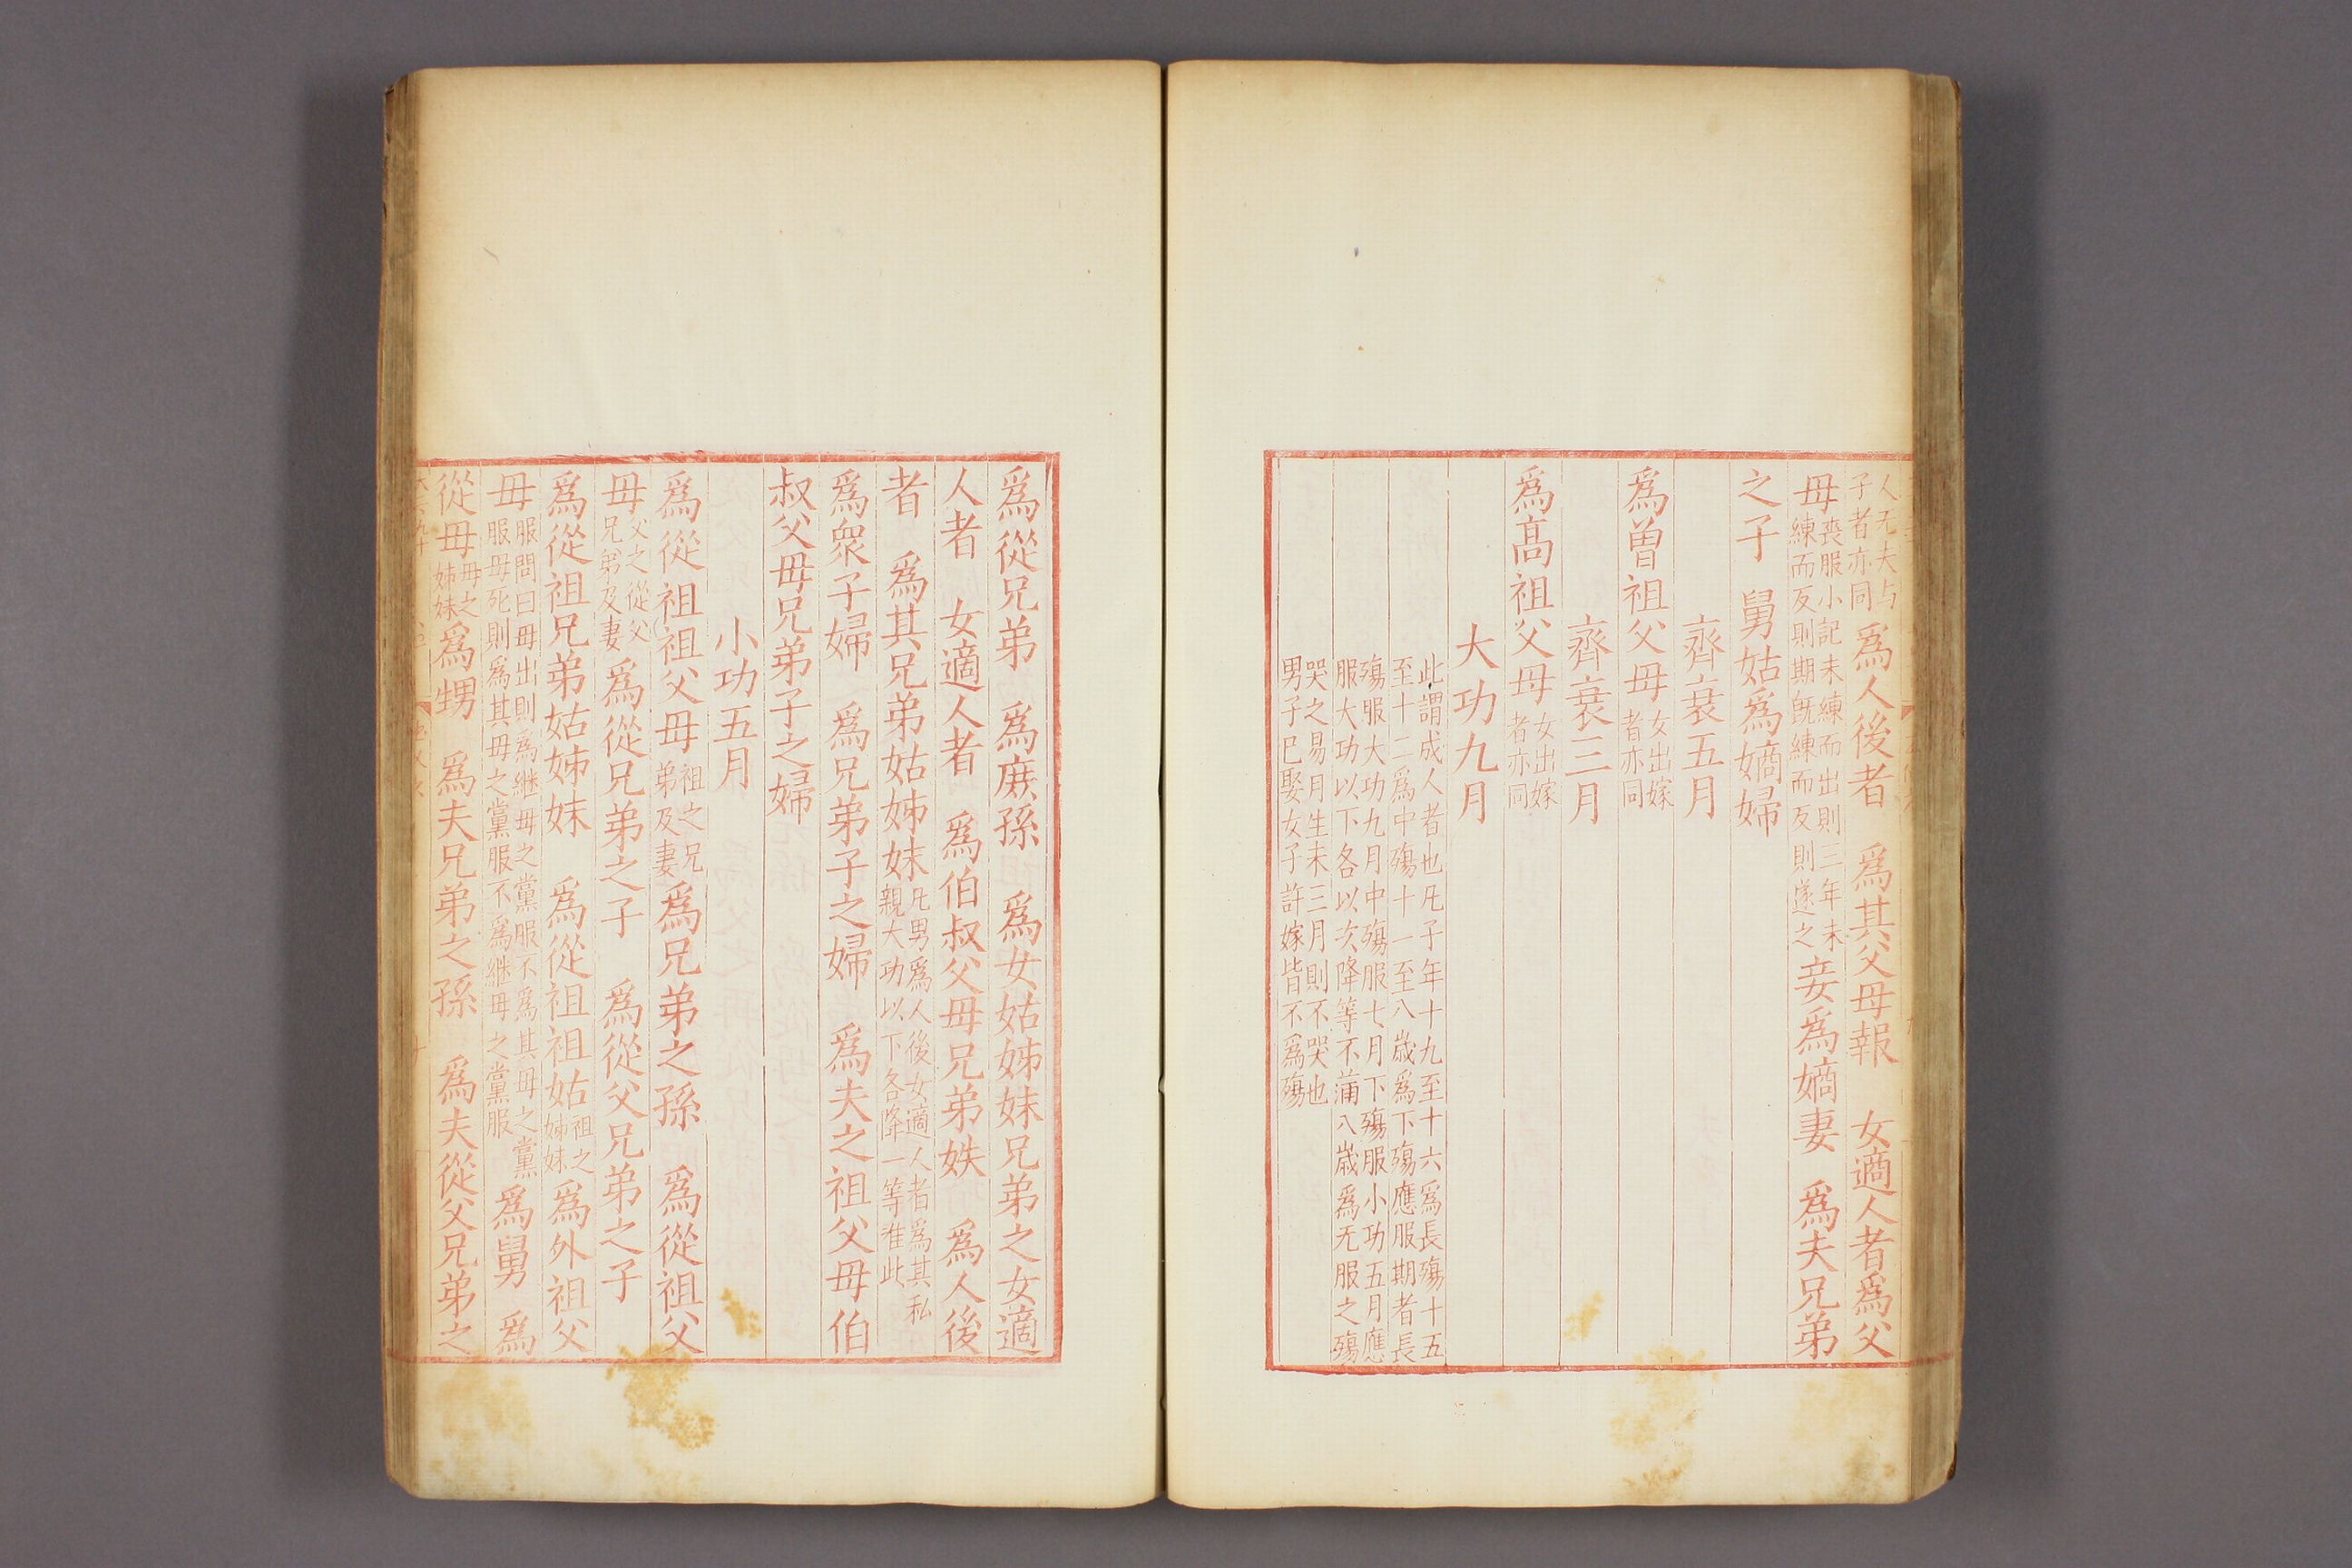 人无夫与
子者亦同
爲人後者　爲其父母報　女適人者爲父
母
喪服小記未練而出則三年未
練而反則期旣練而反則遂之
妾爲嫡妻　爲夫兄弟
之子　舅姑爲嫡婦
齊衰五月
爲曽祖父母
女出嫁
者亦同
齊衰三月
爲髙祖父母
女出嫁
者亦同
大功九月
此謂成人者也凡子年十九至十六爲長殤十五
至十二爲中殤十一至八歲爲下殤應服期者長
殤服大功九月中殤服七月下殤服小功五月應
服大功以下各以次降等不蒲八歲爲无服之殤
哭之易月生未三月則不哭也
男子已娶女子許嫁皆不爲殤
爲從兄弟　爲庻孫　爲女姑姊妹兄弟之女適
人者　女適人者　爲伯叔父母兄弟姪　爲人後
者　爲其兄弟姑姊妹
凡男爲人後女適人者爲其私
親大功以下各降一等准此
爲衆子婦　爲兄弟子之婦　爲夫之祖父母伯
叔父母兄弟子之婦
小功五月
爲從祖祖父母
祖之兄
弟及妻
爲兄弟之孫　爲從祖父
母
父之從父
兄弟及妻
爲從兄弟之子　爲從父兄弟之子
爲從祖兄弟姑姊妹　爲從祖祖姑
祖之
姊妹
爲外祖父
母
服問曰母出則爲継母之黨服不爲其母之黨
服母死則爲其母之黨服不爲継母之黨服
爲舅　爲
從母
母之
姊妹
爲甥　爲夫兄弟之孫　爲夫從父兄弟之